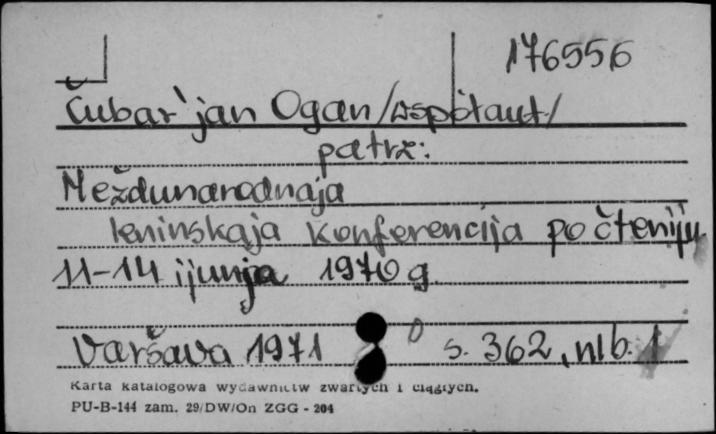 176556
Čubar'jan Ogan /współaut/
patrz:
Meždunarodnaja
leninskaja konferencija po čteniju
11-14 ijunja 1970 g
Varšava 1971 s. 362, nlb. 1
Karta katalogowa wydawnictw zwartych i ciągłych.
PU-B-144 zam. 29/DW/On ZGG - 204